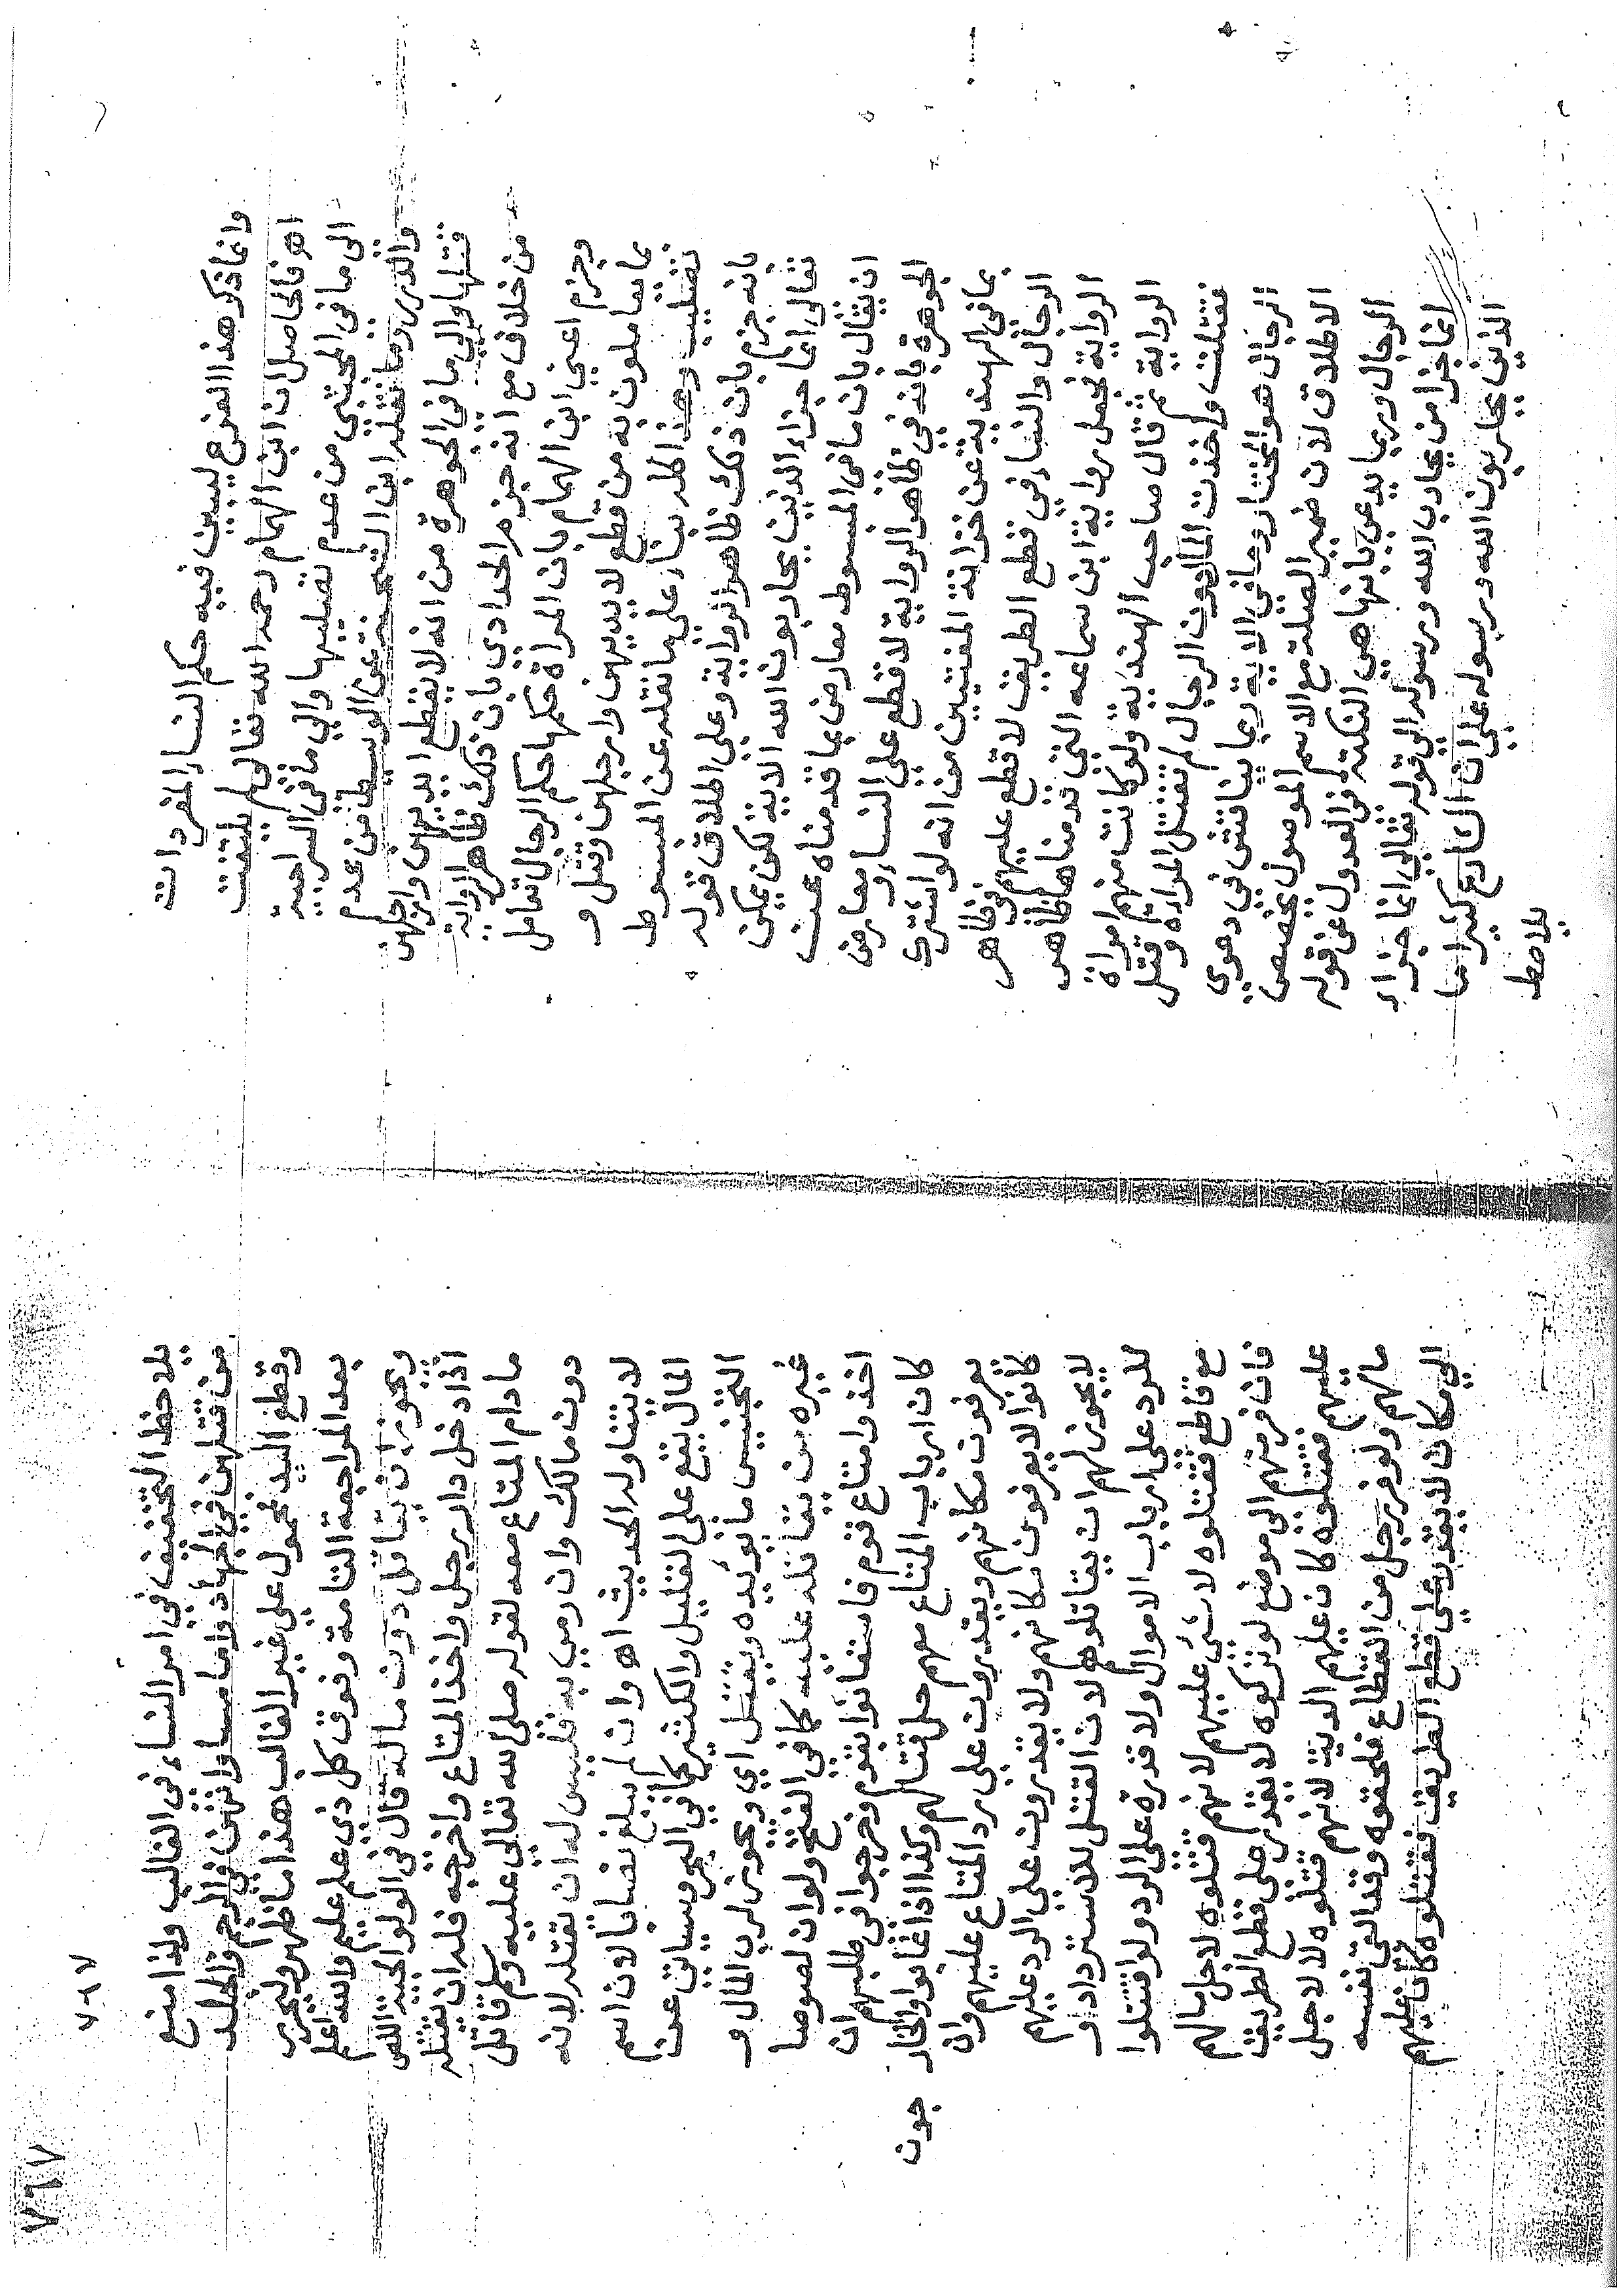 وانما ذكر هذا الفرع ليبين فيه حكم النساء المفردات
اهو فالحاصل ان ابن الهمام رحمه الله تعالى لم يلتفت
الى ما فى المجتبى من عدم تصليبها والي ما فى السراجية
والدرر وما نقله ابن الشحنة عن الوسيط من عدم
قتلها والي ما في الجوهرة من انه لا يقطع ايديهن وارجلهن
من خلاف مع انه جزم الحدادي بان ذلك ظاهر الرواية
وجزم اعني ابن الهمام بان المراة حكمها حكم الرجال تعامل
بما يعاملون به من قطع لايديهن وارجلهن وقتل و
تصليب وهذا كله بناء على ما نقله عن المبسوط
بانه جزم بان ذلك ظاهر الرواية وعلى اطلاق قوله
تعالى انما جزاء الذين يحاربون الله الاية لكن يمكن
ان يقال بان ما فى المبسوط معارض بما قدمناه عن
الجوهرة بانه في ظاهر الرواية لا قطع على النساء ومعارض
بما فى الهندية عن خزانة المفتيين من انه لو اشترك
الرجال والنساء في قطع الطريق لا قطع عليهم في ظاهر
الرواية فيحمل رواية ابن سماعه التي قدمناها ظاهر
الرواية ثم قال صاحب الهندية ولو كانت منهم امراة
فقتلت واخذت المال دون الرجال لم تقتل المراة وقتل
الرجال هو المختار وما في الاية ربما يناقش في دعوى
الاطلاق لان ضمير الصلة مع الاسم الموصول يخصص
الرجال وربما يدعى بانها هي النكتة في العدول عن قوله
انما جزا من يحارب الله ورسوله الى قوله تعالى انما جزاء
الذين يحاربون الله ورسوله على ان الشارع كثيرا ما
يلاحظ
٧٦٧
٧٦٧
يلاحظ التخفيف في امر النساء في الغالب ولذا منع
من قتلهن في الجهاد واما مساواتهن في الرجم والجلد
وقطع اليد فمحمول على غير الغالب هذا ما ظهر وليحرر
بعد المراجعة التامة وفوق كل ذي علم عليم والله اعلم
ويجوز ان يقاتل دون ماله قال في الولوالجية اللص
اذا دخل دار رجل واخذ المتاع واخرجه فله ان يقتله
ما دام المتاع معه لقوله صلى الله تعالى عليه وسلم قاتل
دون مالك وان رمي به فليس له ان يقتله لانه
لا يتناوله الحديث اهو وان لم يبلغ نصابا لان اسم
المال يقع على القليل والكثير كما في البحر وسياتي عن
التجنيس ما يؤيده ويقتل اي ويجوز لرب المال و
غيره من يقاتله عليه كما في الفتح ولو ان لصوصا
اخذوا متاع قوم فاستغاثوا بقوم وخرجوا في طلبهم ان
كان ارباب المتاع معهم حل قتالهم وكذا اذا غابوا والخار جون
يعرفون مكانهم ويقدرون على رد المتاع عليهم وان
كانوا لا يعرفون مكانهم ولا يقدرون على الرد عليهم
لا يجوز لهم ان يقاتلوهم لان القتل للاسترداد و
للرد على ارباب الاموال ولا قدرة على الرد ولو اقتتلوا
مع قاطع فقتلوه لا شئ عليهم لانهم قتلوه لاجل مالهم
فان فر منهم الى موضع لو تركوه لا يقدر على قطع الطريق
عليهم فقتلوه كان عليهم الدية لانهم قتلوه لا لاجل
مالهم ولو فر رجل من القطاع فلحقوه وقد القى نفسه
الى مكان لا يقدر على قطع الطريق فقتلوه كان عليهم